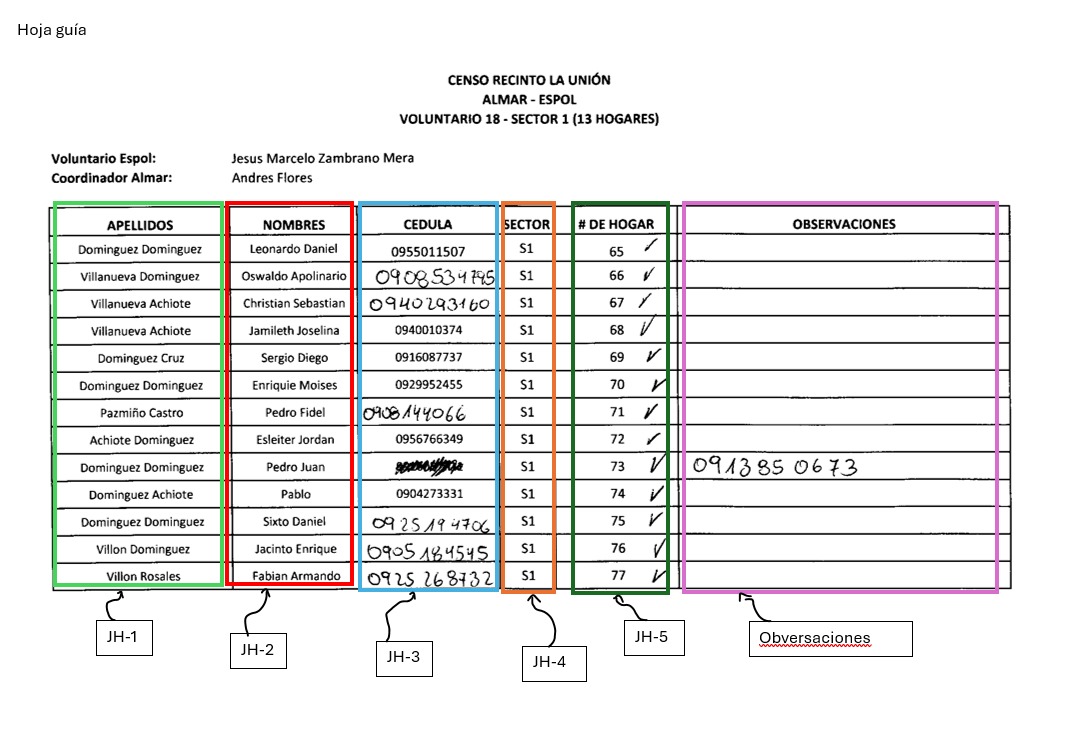 Hoja guía
CENSO RECINTO LA UNIÓN
ALMAR - ESPOL
VOLUNTARIO 18 - SECTOR 1 (13 HOGARES)
Voluntario Espol: Jesus Marcelo Zambrano Mera
Coordinador Almar: Andres Flores
APELLIDOS NOMBRES CEDULA SECTOR # DE HOGAR OBSERVACIONES
Dominguez Dominguez Leonardo Daniel 0955011507 S1 65 ✓
Villanueva Dominguez Oswaldo Apolinario 0908534795 S1 66 ✓
Villanueva Achiote Christian Sebastian 0940293160 S1 67 ✓
Villanueva Achiote Jamileth Joselina 0940010374 S1 68 ✓
Dominguez Cruz Sergio Diego 0916087737 S1 69 ✓
Dominguez Dominguez Enriquie Moises 0929952455 S1 70 ✓
Pazmiño Castro Pedro Fidel 0908144066 S1 71 ✓
Achiote Dominguez Esleiter Jordan 0956766349 S1 72 ✓
Dominguez Dominguez Pedro Juan S1 73 ✓ 091385 0673
Dominguez Achiote Pablo 0904273331 S1 74 ✓
Dominguez Dominguez Sixto Daniel 0925194706 S1 75 ✓
Villon Dominguez Jacinto Enrique 0905184545 S1 76 ✓
Villon Rosales Fabian Armando 0925268732 S1 77 ✓
JH-1 JH-2 JH-3 JH-4 JH-5 Obversaciones